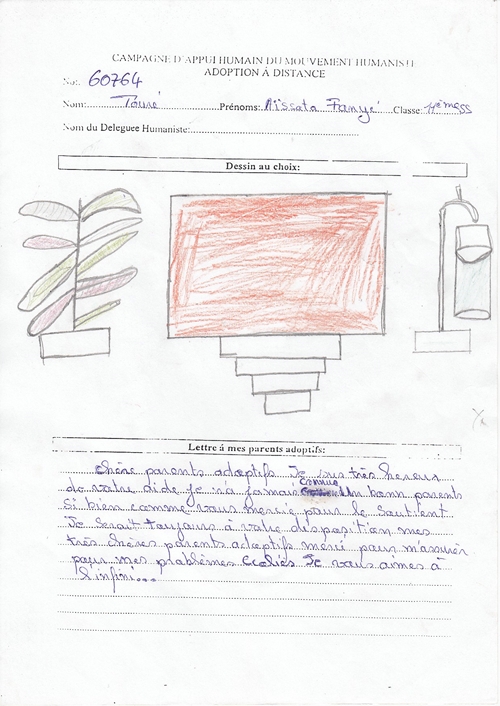 CAMPAGNE D'APPUI HUMAIN DU MOUVEMENT HUMANISTE
ADOPTION À DISTANCE
No: 60764
Nom: Touré Prénoms: Aïssata Fanyé Classe:
Nom du Deleguee Humaniste:
Dessin au choix:
Lettre à mes parents adoptifs:
chère parents adoptifs Je sus très hereux
de votre aide je n'a jamais Connue Un bonn parents
Si bien comme vous mercie pour le Soutient
Je serait toujours à votre disposition mes
très chères parents adoptifs merci pour m'assurér
pour mes problèmes Ecoliés Je vous aimes à
l'infini...